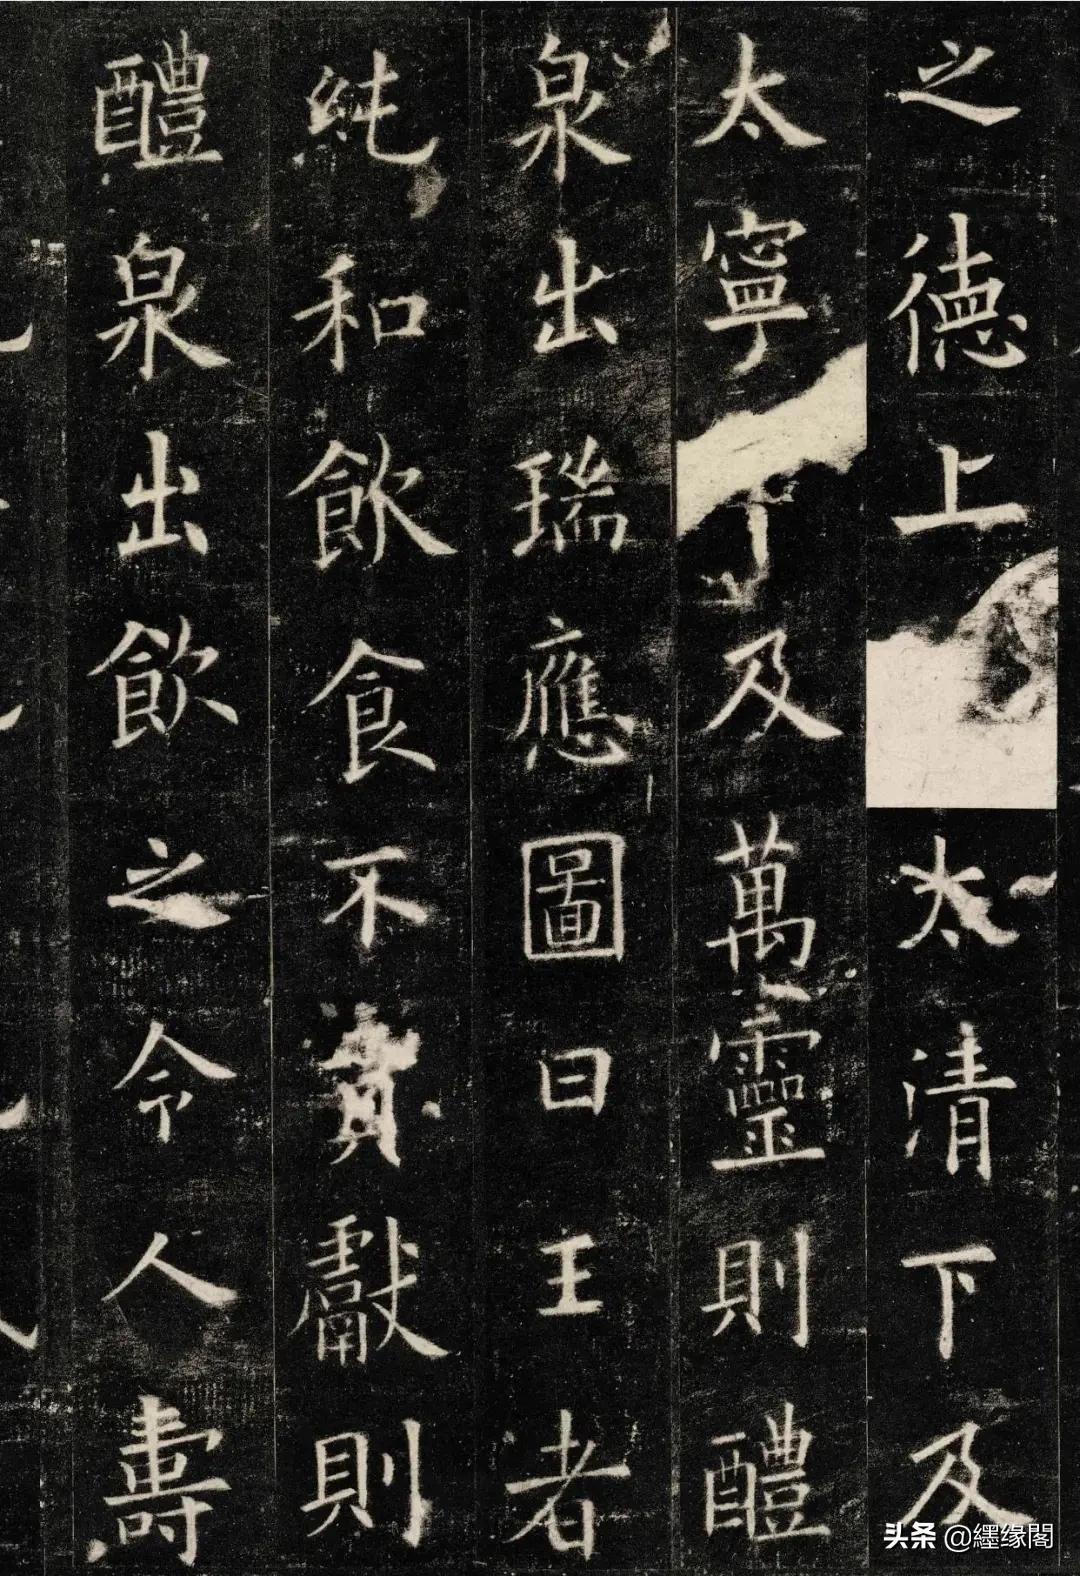 之德上太清下及
太寧下及萬靈則醴
泉出瑞應圖曰王者
純和飲食不貢獻則
醴泉出飲之令人壽
头条 @纆缘閣